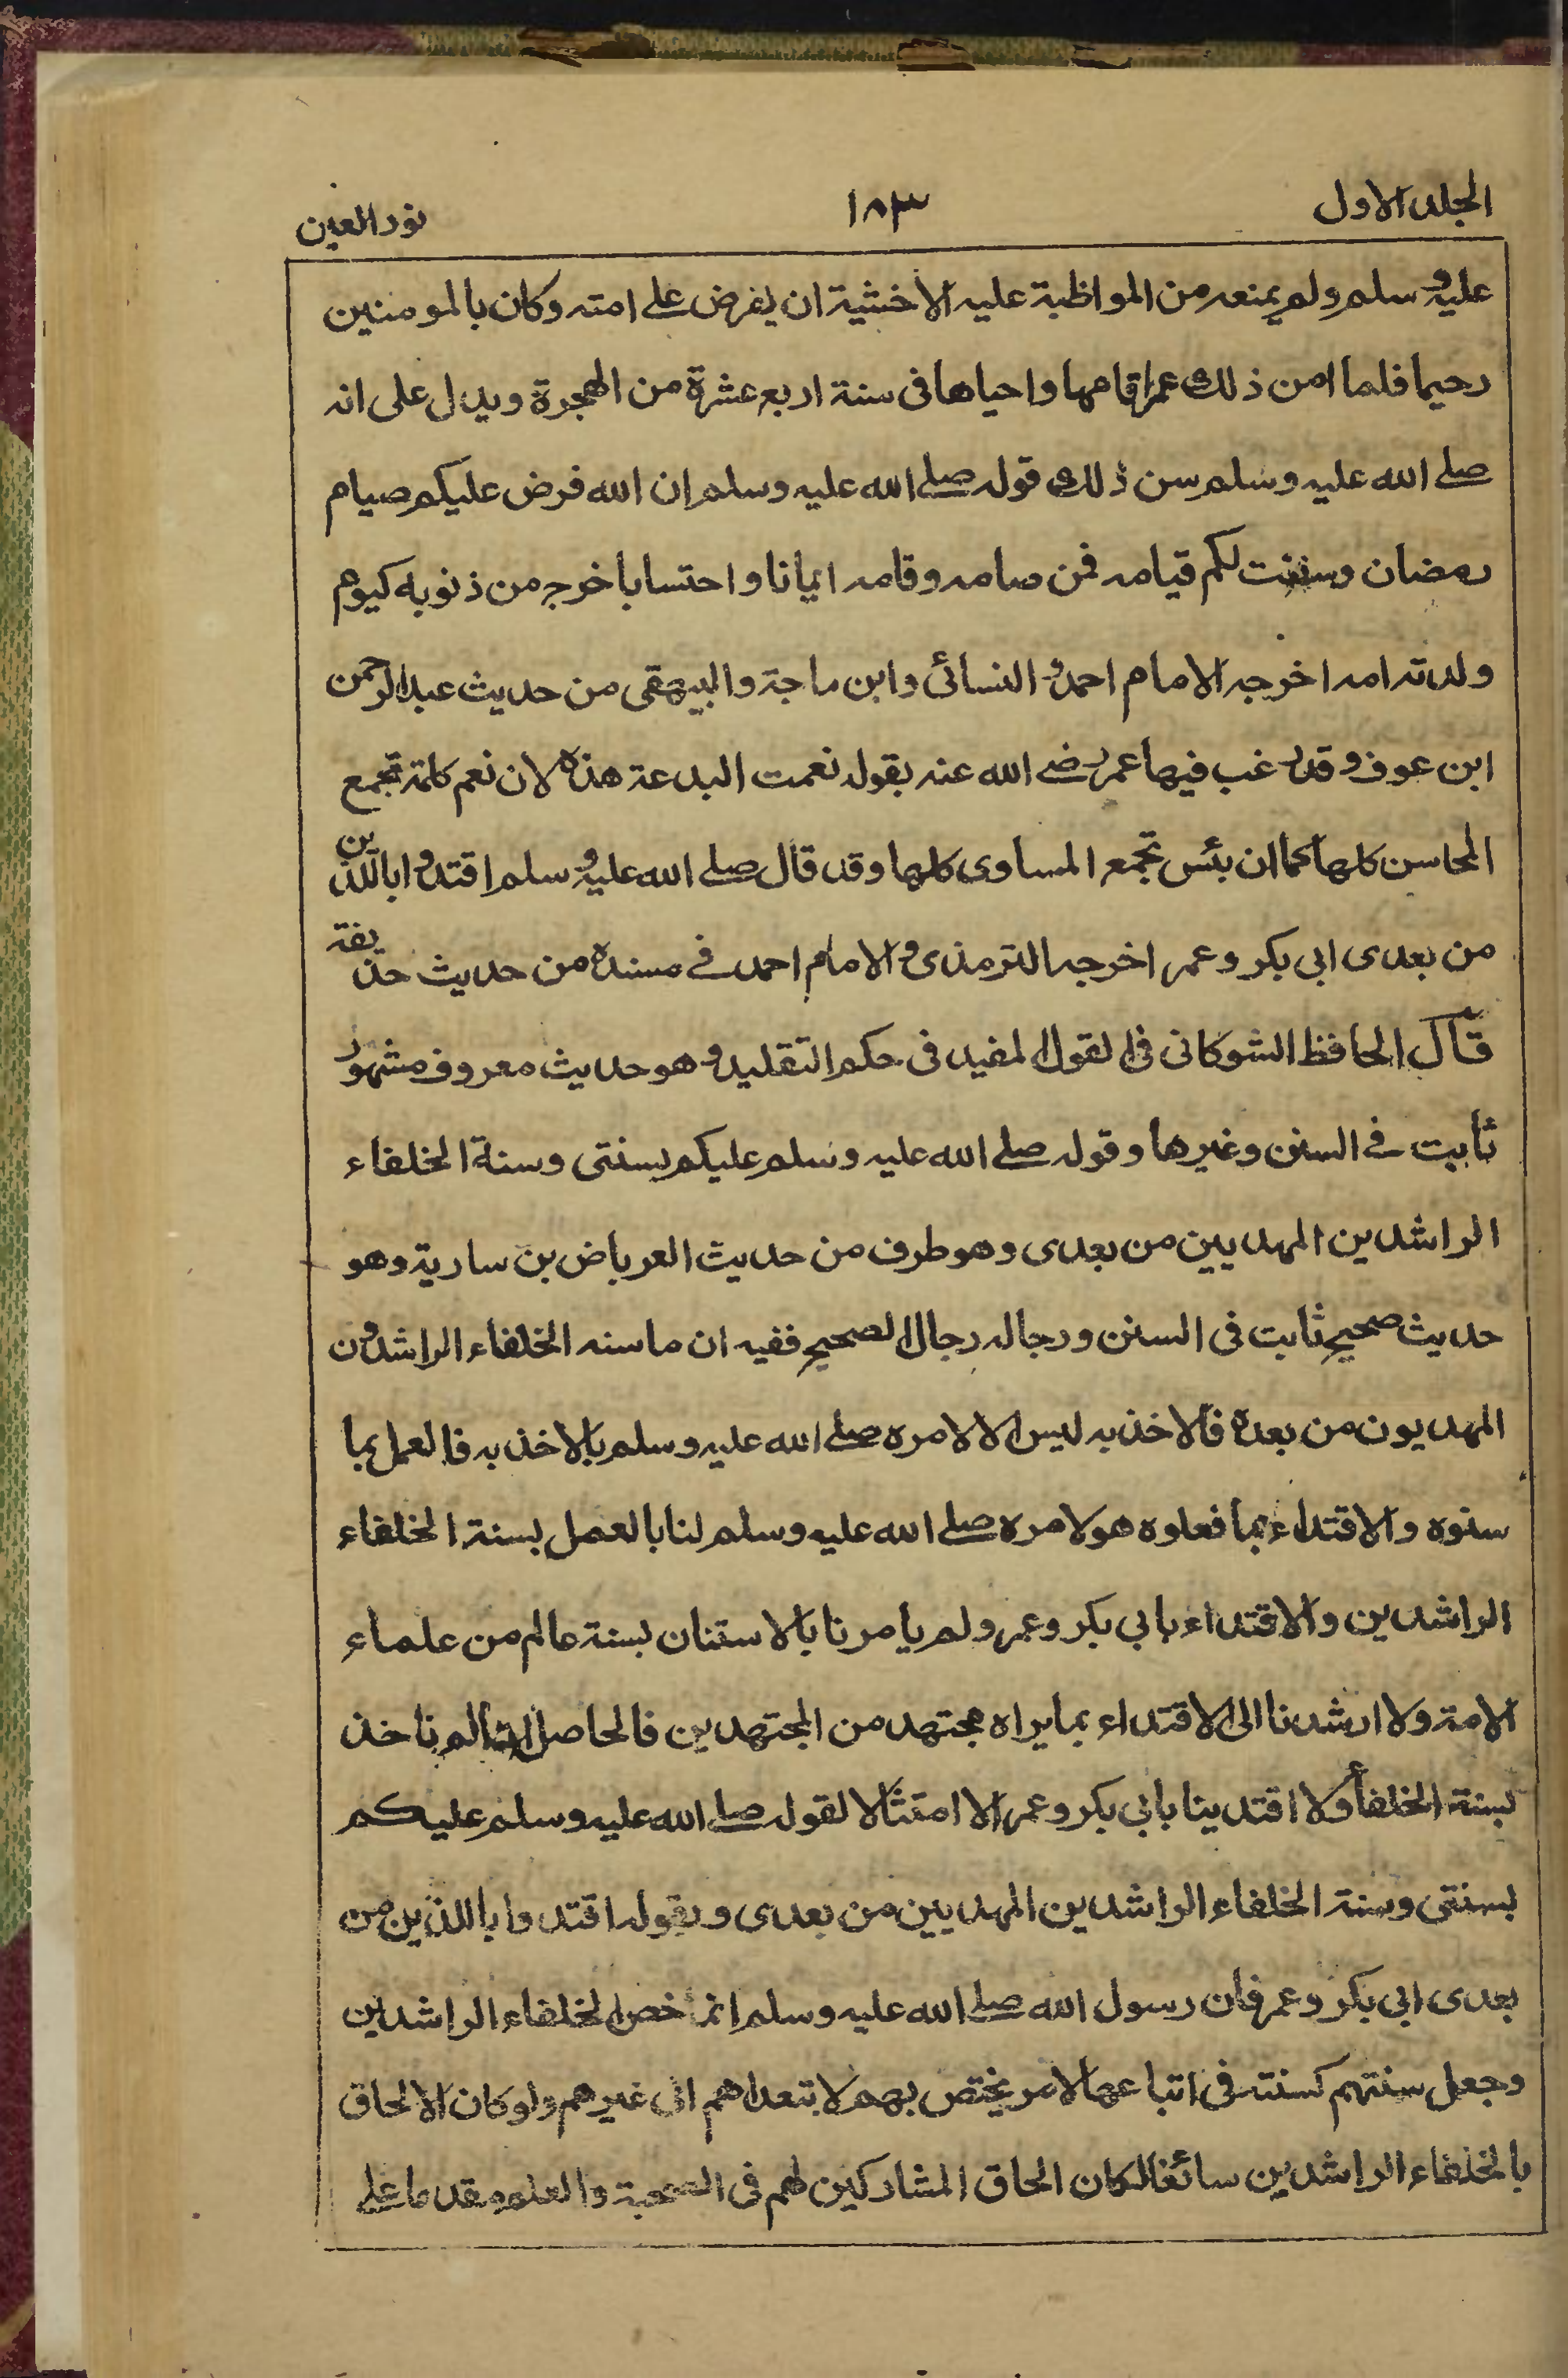 الجلد الاول
١٨٣
نور العين
عليه وسلم ولم يمنعه من المواظبة عليه الا خشية ان يفرض على امته وكان بالمومنين
رحيما فلما امن ذلك عمر اقامها واحياها فى سنة اربع عشرة من الهجرة ويدل على انه
صلے الله عليه وسلم سن ذلك قوله صلے الله عليه وسلم ان الله فرض عليكم صيام
رمضان وسننت لكم قيامه فمن صامه وقامه ايمانا واحتسابا خرج من ذنوبه كيوم
ولدته امه اخرجه الامام احمد و النسائى وابن ماجة والبيهقى من حديث عبد الرحمن
ابن عوف وقد رغب فيها عمر رضے الله عنه بقوله نعمت البدعة هذه لان نعم كلمة تجمع
المحاسن كلها كما ان بئس تجمع المساوى كلها وقد قال صلے الله عليه وسلم اقتدوا باللذين
من بعدى ابى بكر وعمر اخرجه الترمذى و الامام احمد فے مسنده من حديث حذيفة
قال الحافظ الشوكانى فى القول المفيد فى حكم التقليد و هو حديث معروف مشهور
ثابت فے السنن وغيرها وقوله صلے الله عليه وسلم عليكم بسنتى وسنة الخلفاء
الراشدين المهديين من بعدى وهو طرف من حديث العرباض بن سارية وهو
حديث صحيح ثابت فى السنن ورجاله رجال الصحيح ففيه ان ما سنه الخلفاء الراشدون
المهديون من بعده فالاخذ به ليس الا لامره صلے الله عليه وسلم بالاخذ به فالعمل بما
سنوه والاقتداء بما فعلوه هو لامره صلے الله عليه وسلم لنا بالعمل بسنة الخلفاء
الراشدين والاقتداء بابي بكر وعمر ولم يامرنا بالاستنان بسنة عالم من علماء
الامة ولا ارشدنا الى الاقتداء بما يراه مجتهد من المجتهدين فالحاصل انا لم ناخذ
بسنة الخلفاء ولا اقتدينا بابي بكر وعمر الا امتثالا لقوله صلے الله عليه وسلم عليكم
بسنتى وسنة الخلفاء الراشدين المهديين من بعدى وبقوله اقتدوا باللذين من
بعدى ابى بكر وعمر فان رسول الله صلے الله عليه وسلم انما خص الخلفاء الراشدين
وجعل سنتهم كسنته فى اتباعها لامر يختص بهم لا يتعداهم الى غيرهم ولو كان الالحاق
بالخلفاء الراشدين سائغا لكان الحاق المشاركين لهم فى الصحبة والعلم مقدما على